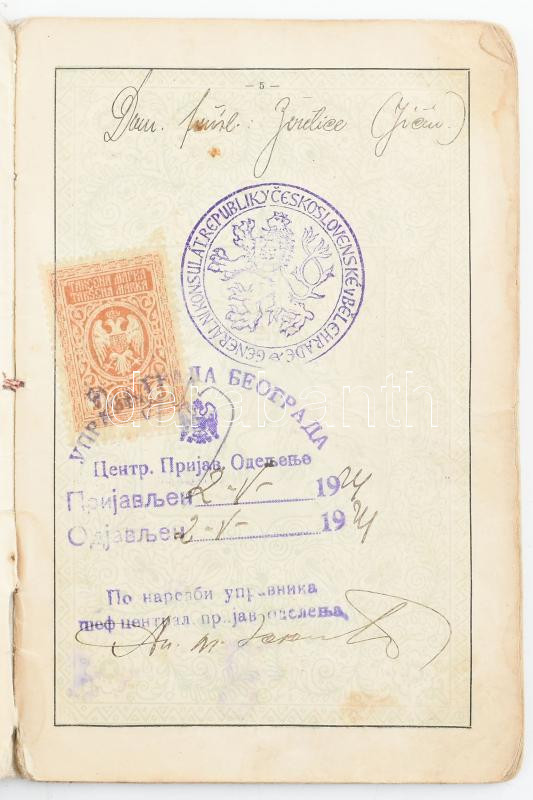 — 5 —
Dom. přísl.: Žeretice (Jičín.)
GENERÁLNÍ KONSULÁT REPUBLIKY ČESKOSLOVENSKÉ V BĚLEHRADĚ
ТАКСЕНА МАРКА
TAKSENA MARKA
УПРАВА ГРАДА БЕОГРАДА
Центр. Пријав. Одељење
Пријављен 2-V- 1924
Одјављен 2-V- 1924
По наредби управника
шеф централ. пријав. оделења,
darabanth